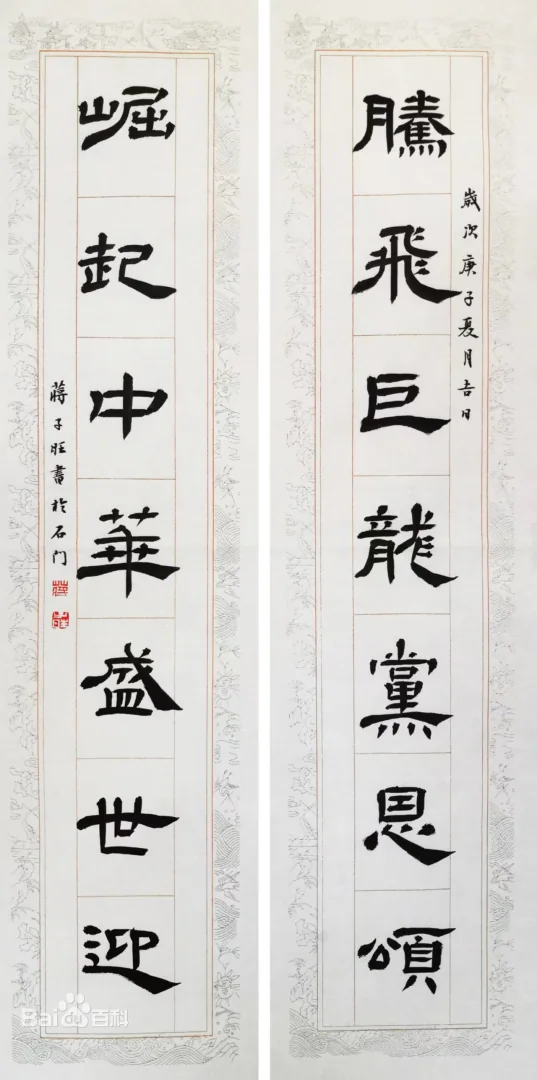 歲次庚子夏月吉日
騰飛巨龍黨恩頌
崛起中華盛世迎
蔣子旺書於石门
Baidu百科